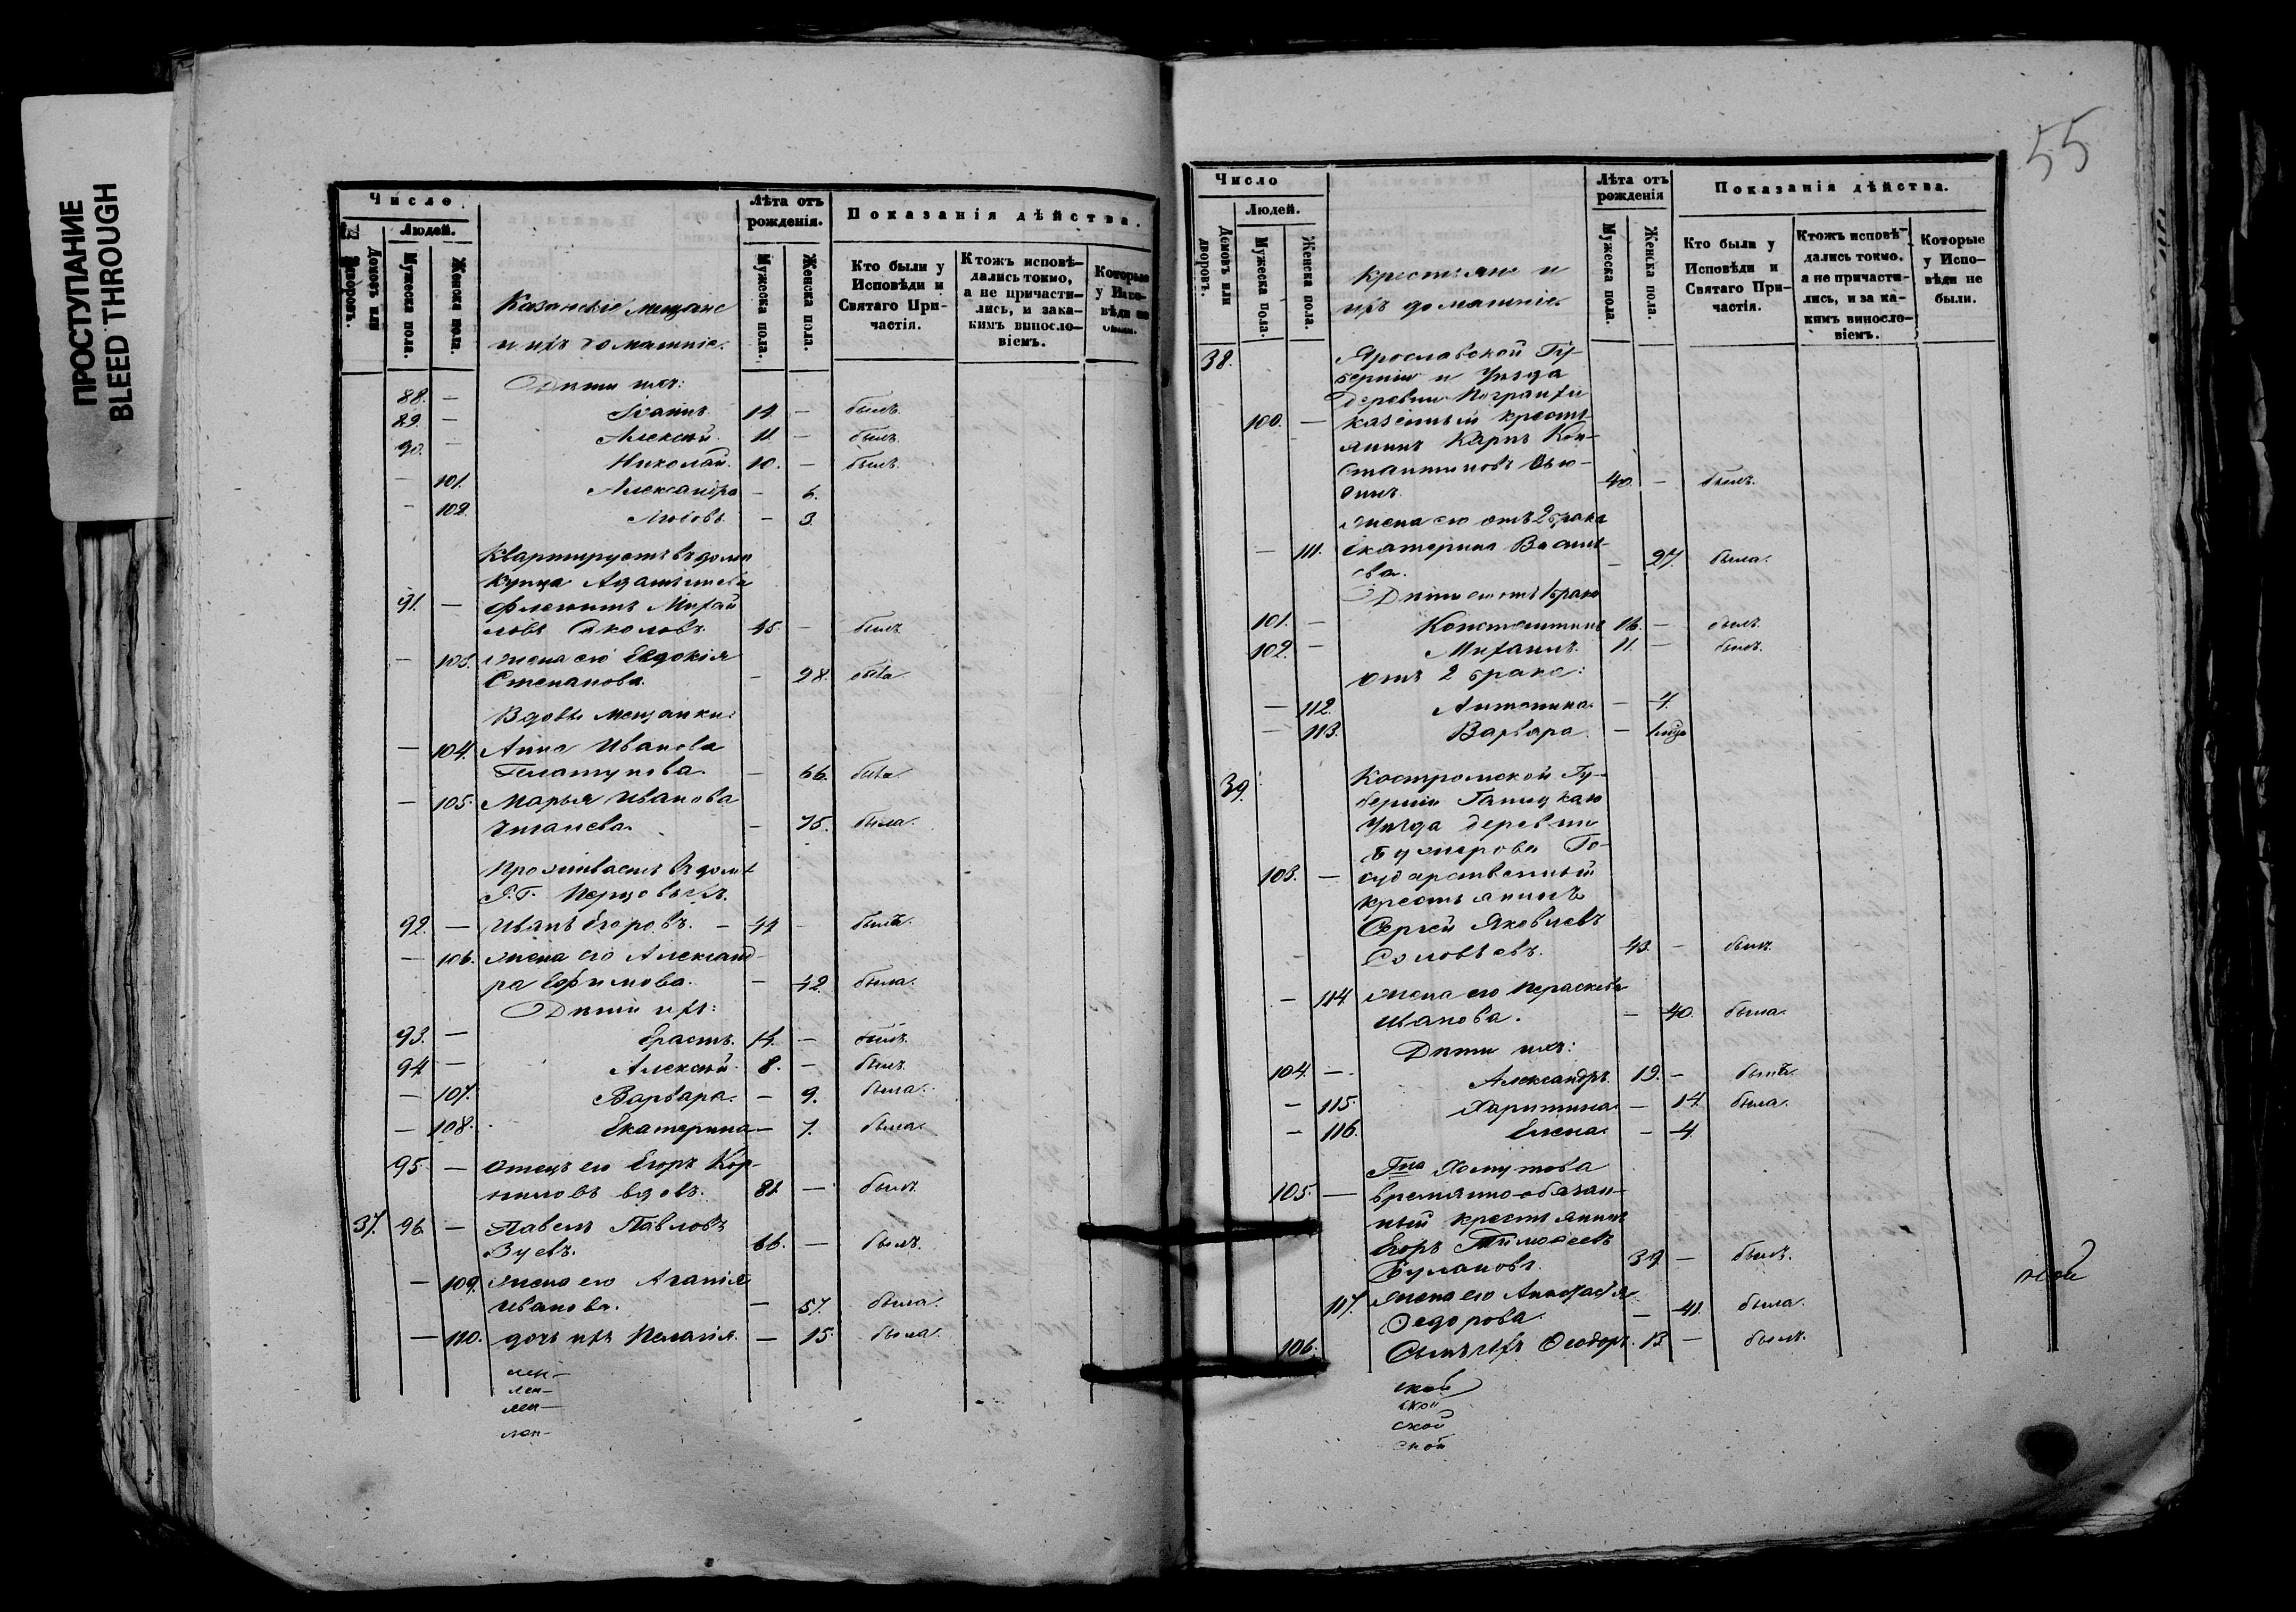 ПРОСТУПАНИЕ
BLEED THROUGH
Число
Людей.
Домовъ или дворовъ.
Мужеска пола.
Женска пола.
Казанскіе мещане
и ихъ домашніе.
Лѣта отъ рожденія.
Мужеска пола.
Женска пола.
Показанія дѣйства.
Кто были у Исповѣди и Святаго Причастія.
Ктожъ исповѣдались токмо, а не причастились, и закакимъ винословіемъ.
Которые у Исповѣди не были.
Дѣти ихъ:
88. — Іоаннъ. 14. — былъ.
89. — Алексѣй. 11. — былъ.
90. — Николай. 10. — былъ.
— 101. Александра — 6.
— 102. Любовь — 3.
Квартируетъ въ домѣ
купца
91. — Филиппъ Михай
ловъ Соколовъ. 45. — былъ
— 103. Жена его Евдокія
Степанова. — 28. была.
Вдовы мещанки:
— 104. Анна Иванова
— 66. была
— 105. Марья Иванова
— 75. была.
Проживаетъ въ домѣ
Г.Г. Перцовыхъ.
92. — Иванъ Егоровъ. — 44 — былъ.
— 106. Жена его Александ-
ра Ефимова. — 42. была.
Дѣти ихъ:
93. — Ерастъ. 14. — былъ.
94. — Алексѣй. 8. — былъ.
— 107. Варвара. — 9. была.
— 108. Екатерина — 7. была.
95. — Отецъ его Егоръ Кор-
ниловъ вдовъ. 81. — былъ.
37. 96. — Павелъ Павловъ
Зуевъ. 66. — былъ.
— 109. Жена его Агапія
Иванова. — 57. была.
— 110. дочь ихъ Пелагія. — 15. была.
лен-
лен-
лен-
лен-
55
Число
Людей.
Домовъ или дворовъ.
Мужеска пола.
Женска пола.
Крестьяне и
ихъ домашніе.
Лѣта отъ рожденія
Мужеска пола.
Женска пола.
Показанія дѣйства.
Кто были у Исповѣди и Святаго Причастія.
Ктожъ исповѣдались токмо, а не причастились, и за какимъ винословіемъ.
Которые у Исповѣди не были.
38. Ярославской Гу-
берніи и Уѣзда
деревни
100. — казенный кресть
янинъ Карпъ Кон-
стантиновъ Вью-
гинъ. 40. — былъ.
Жена его отъ 2 брака
— 111. Екатерина Василь
ева. — 27. была.
Дѣти его отъ 1 брака
101. — Константинъ 16. — былъ
102. — Михаилъ. 11. — былъ.
Отъ 2 брака:
— 112. Антонина. — 4.
— 113. Варвара. — 1 мѣс.
39. Костромской Гу-
берніи Галицкаго
Уѣзда деревни
Го-
103. — сударственный
крестьянинъ
Сергѣй Яковлевъ
Соловьевъ. 43. — былъ.
— 114 Жена его Параскева
Иванова. — 40. была.
Дѣти ихъ:
104. — Александръ. 19. — былъ.
— 115. Харитина — 14. была.
— 116. Елена — 4.
Гна Хомутова
105. — временно-обязан-
ный крестьянинъ
Егоръ Тимоѳеевъ
Булановъ. 39. — былъ.
117. Жена его Анастасія
Ѳедорова. — 41. была.
106. Сынъ ихъ Ѳеодоръ. 13 — былъ.
ской
ской
ской
ской